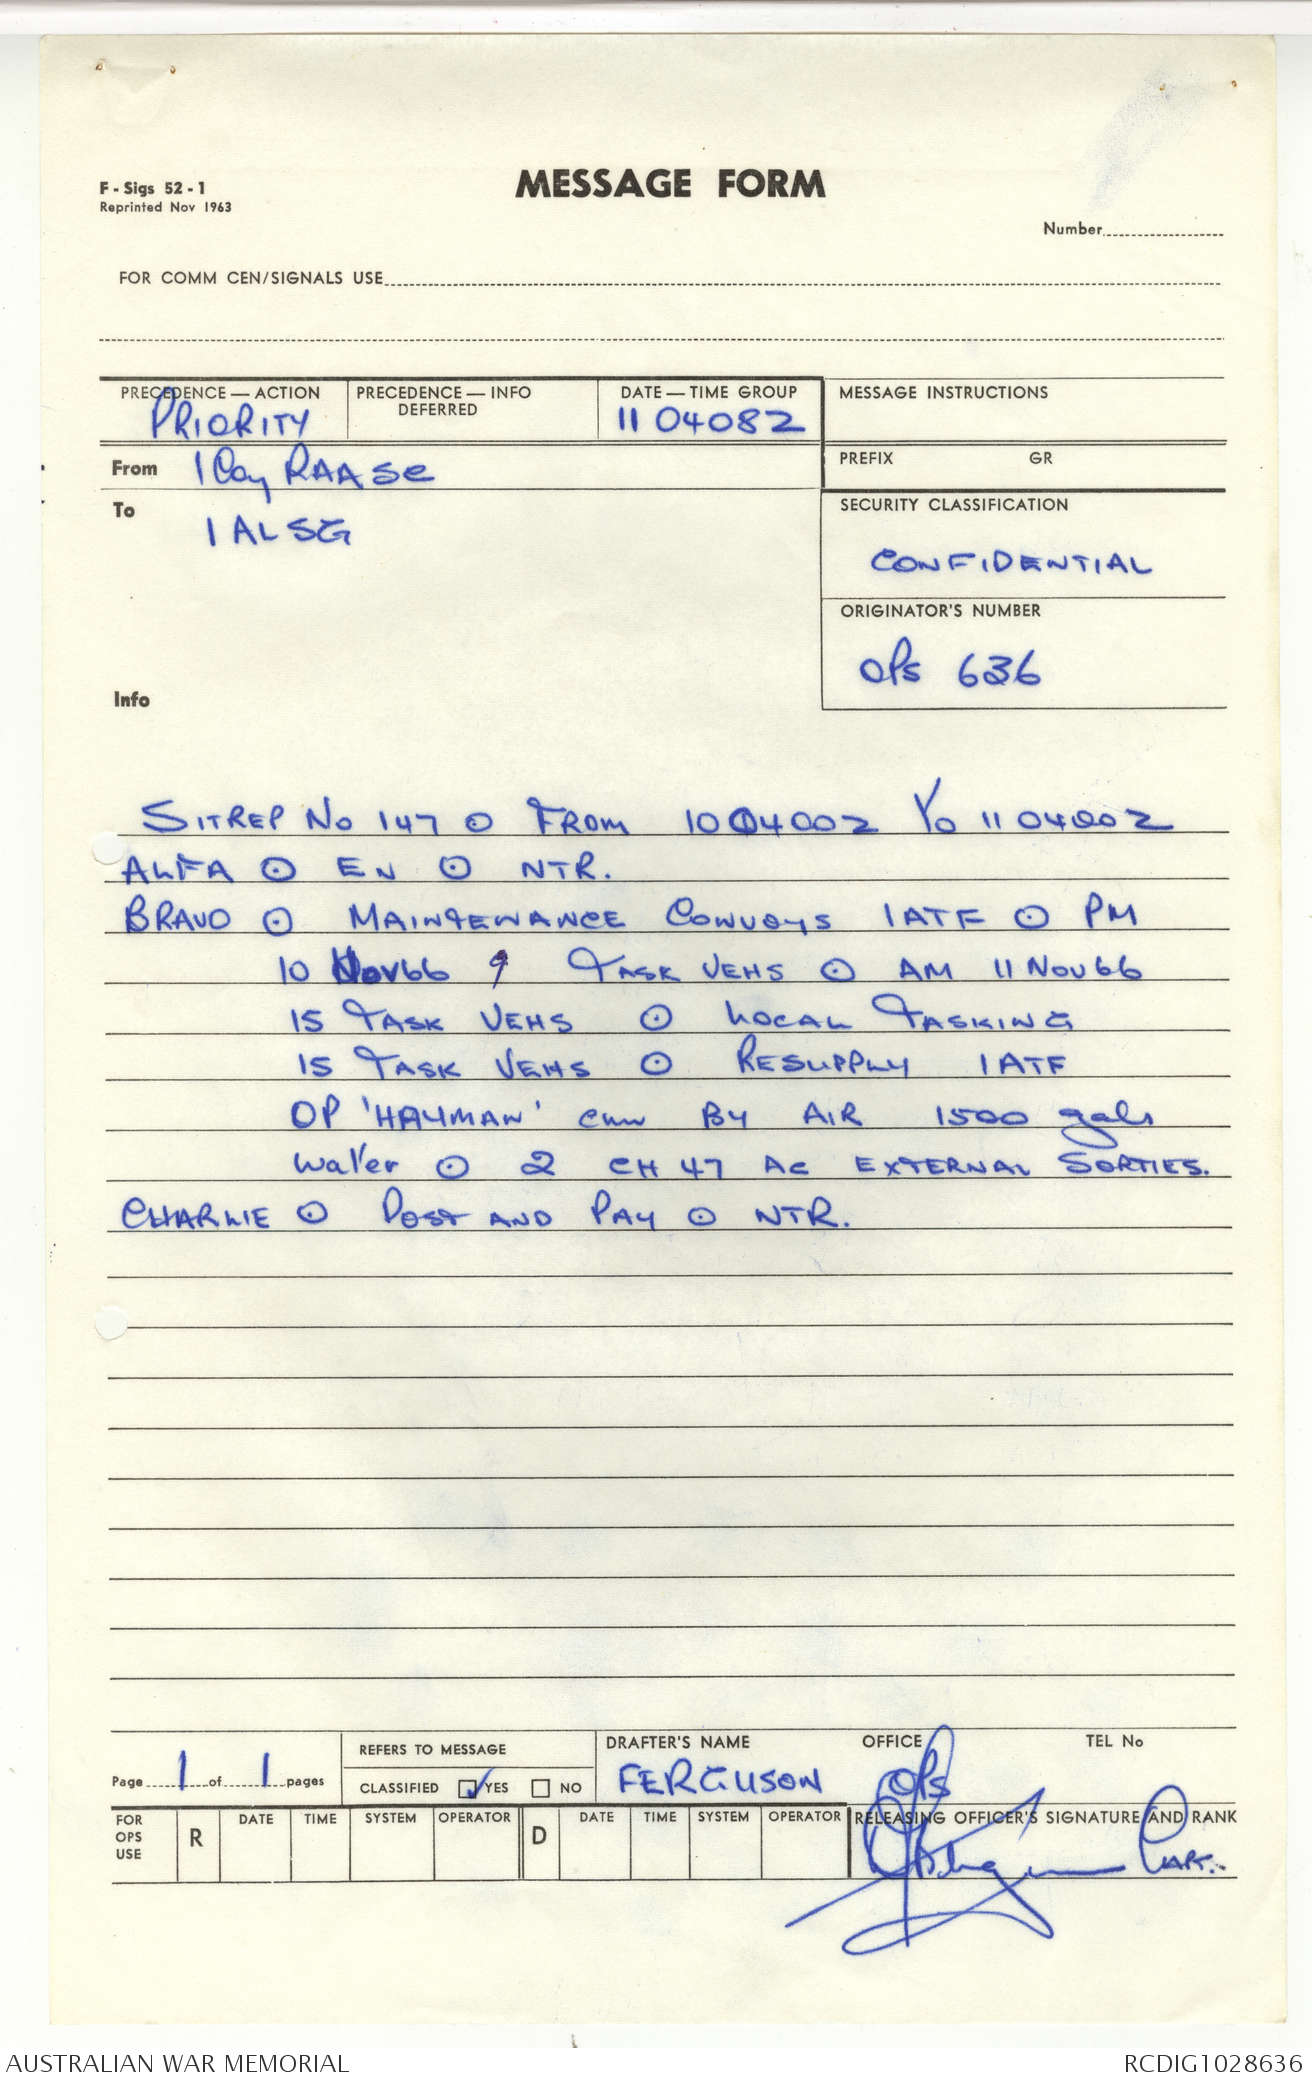 F - Sigs 52 - 1
Reprinted Nov 1963
MESSAGE FORM
Number
FOR COMM CEN/SIGNALS USE
PRECEDENCE — ACTION
PRIORITY
PRECEDENCE — INFO
DEFERRED
DATE — TIME GROUP
11 0408Z
MESSAGE INSTRUCTIONS
From 1 Coy RAASC
PREFIX GR
To
1 ALSG
SECURITY CLASSIFICATION
CONFIDENTIAL
ORIGINATOR'S NUMBER
OPS 636
Info
SITREP No 147 ⊙ FROM 100400Z To 110400Z
ALFA ⊙ EN ⊙ NTR.
BRAVO ⊙ MAINTENANCE CONVOYS 1ATF ⊙ PM
10 Nov66 9 TASK VEHS ⊙ AM 11 Nov66
15 TASK VEHS ⊙ LOCAL TASKING
15 TASK VEHS ⊙ RESUPPLY 1ATF
OP 'HAYMAN' CMM BY AIR 1500 gals
Water ⊙ 2 CH 47 AC EXTERNAL SORTIES.
CHARLIE ⊙ POST AND PAY ⊙ NTR.
Page 1 of 1 pages
REFERS TO MESSAGE
CLASSIFIED ☑ YES ☐ NO
DRAFTER'S NAME
FERGUSON
OFFICE
OPS
TEL No
FOR OPS USE
R
DATE TIME SYSTEM OPERATOR
D
DATE TIME SYSTEM OPERATOR
RELEASING OFFICER'S SIGNATURE AND RANK
CAPT.
AUSTRALIAN WAR MEMORIAL
RCDIG1028636